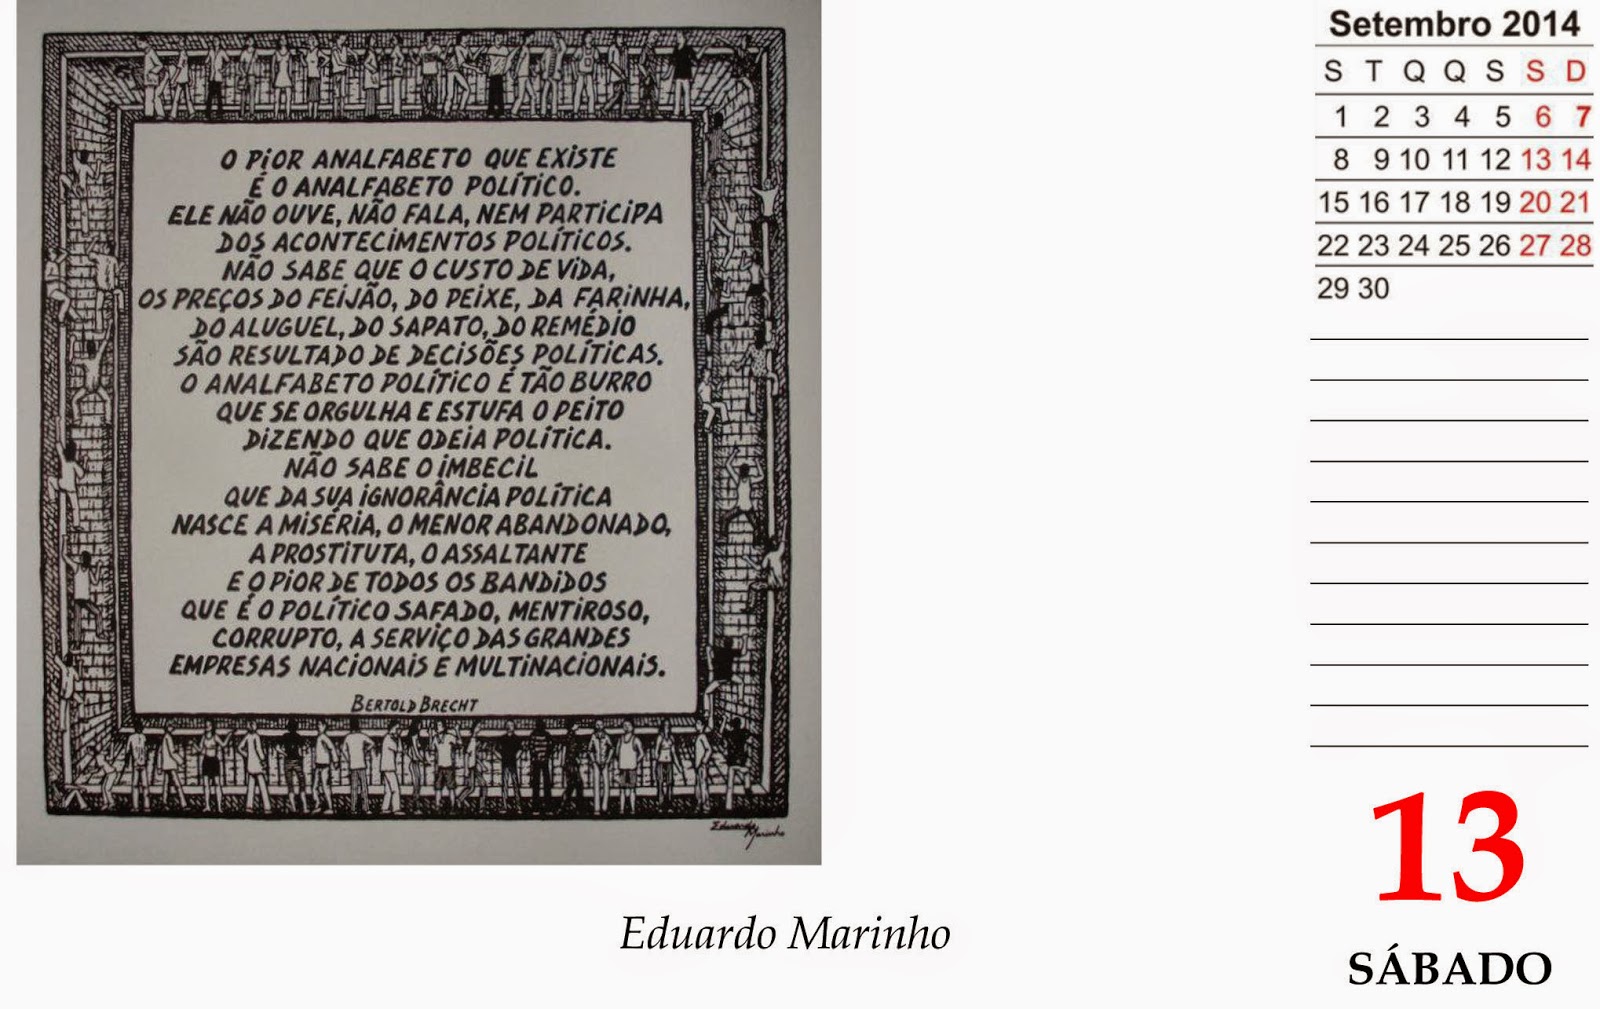 O PIOR ANALFABETO QUE EXISTE
É O ANALFABETO POLÍTICO.
ELE NÃO OUVE, NÃO FALA, NEM PARTICIPA
DOS ACONTECIMENTOS POLÍTICOS.
NÃO SABE QUE O CUSTO DE VIDA,
OS PREÇOS DO FEIJÃO, DO PEIXE, DA FARINHA,
DO ALUGUEL, DO SAPATO, DO REMÉDIO
SÃO RESULTADO DE DECISÕES POLÍTICAS.
O ANALFABETO POLÍTICO É TÃO BURRO
QUE SE ORGULHA E ESTUFA O PEITO
DIZENDO QUE ODEIA POLÍTICA.
NÃO SABE O IMBECIL
QUE DA SUA IGNORÂNCIA POLÍTICA
NASCE A MISÉRIA, O MENOR ABANDONADO,
A PROSTITUTA, O ASSALTANTE
E O PIOR DE TODOS OS BANDIDOS
QUE É O POLÍTICO SAFADO, MENTIROSO,
CORRUPTO, A SERVIÇO DAS GRANDES
EMPRESAS NACIONAIS E MULTINACIONAIS.
BERTOLD BRECHT
Eduardo
Marinho
Eduardo Marinho
Setembro 2014
S T Q Q S S D
1 2 3 4 5 6 7
8 9 10 11 12 13 14
15 16 17 18 19 20 21
22 23 24 25 26 27 28
29 30
13
SÁBADO